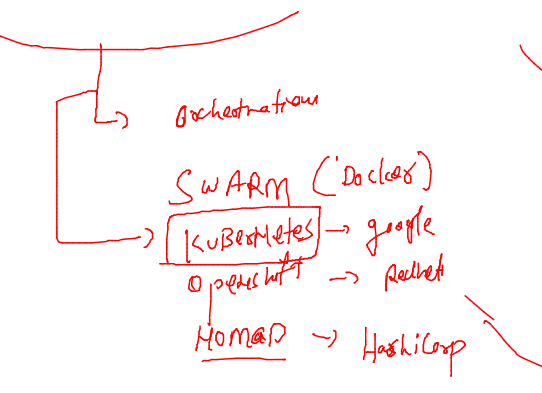 Orchestration
SWARM (Docker)
KuBerNetes → google
Openshift → Redhat
NOMAD → HashiCorp